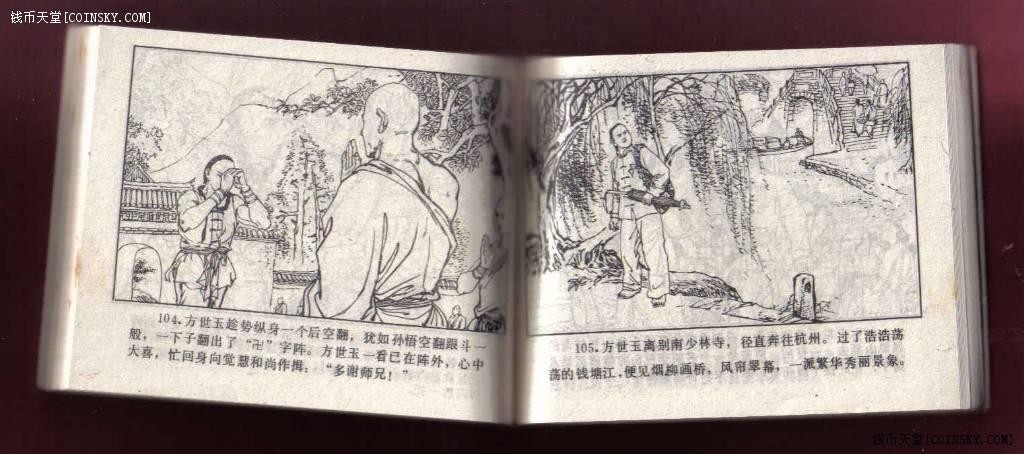 钱币天堂[COINSKY.COM]
104.方世玉趁势纵身一个后空翻，犹如孙悟空翻跟斗一
般，一下子翻出了“卍”字阵。方世玉一看已在阵外，心中
大喜，忙回身向觉慧和尚作揖：“多谢师兄！”
105.方世玉离别南少林寺，径直奔往杭州。过了浩浩荡
荡的钱塘江，便见烟柳画桥，风帘翠幕，一派繁华秀丽景象。
钱币天堂[COINSKY.COM]